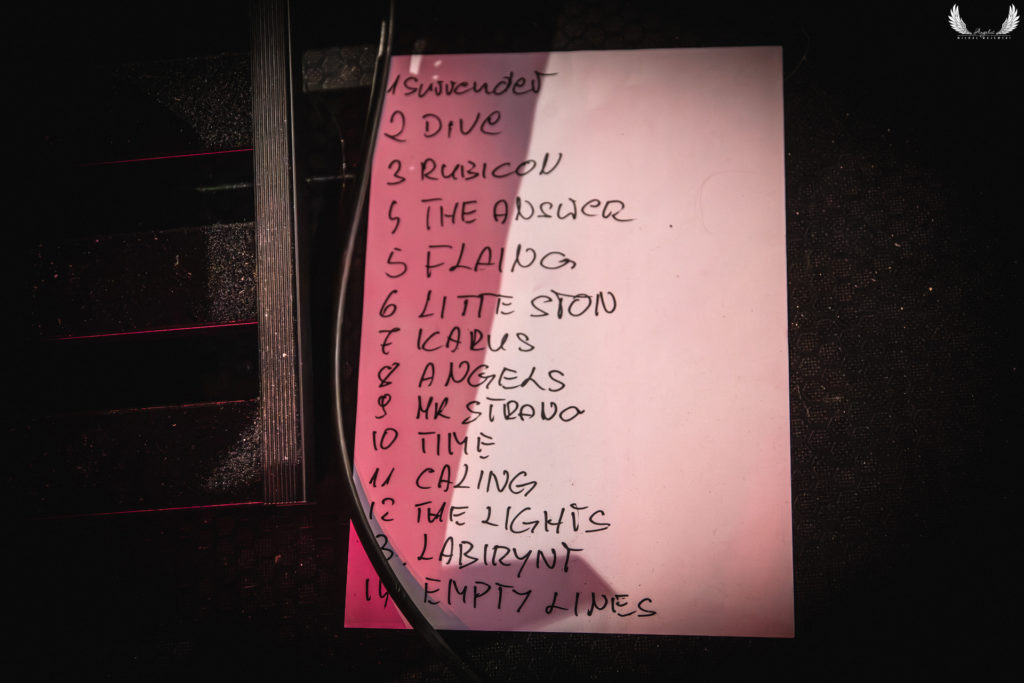 1 Surrender
2 DIVE
3 RUBICON
4 THE ANSWER
5 FLAING
6 LITTE STON
7 ICARUS
8 ANGELS
9 MR STRANG
10 TIME
11 CALING
12 THE LIGHTS
3. LABIRYNT
14 EMPTY LINES